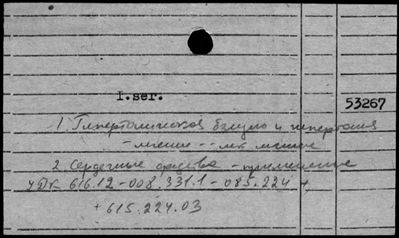 I.ser.
53267
1. Гипертоническая и гипертония
- лечение --
2. Сердечные средства - применение
УДК 616.12-008.331.1-085.224 +
+ 615.224.03